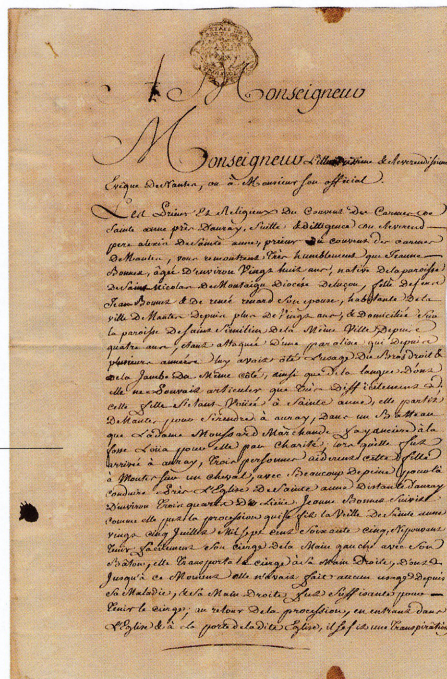 A Monseigneur
Monseigneur L'illustrissime & Reverendissime
Evêque de Nantes, ou à Monsieur son official.
Les Prieur Et Religieux Du Couvent Des Carmes de
Sainte anne près Dauray, suitte & dilligence du Reverend
pere alexis De Sainte anne, prieur du couvent des carmes
De Nantes, vous remontrent très humblement que Jeanne
Bonnet, agée D'environ Vingt huit ans, native de la paroisse
De Saint Nicolas de Montaigu Diocèse Deluçon, fille de feu
Jean Bonnet & de renée renard son epouse, habitante De la
ville De Nantes Depuis plus de Vingt ans, & Domiciliée sur
la paroisse de Saint Similien De la Même Ville, Depuis
quatre ans, étant attaquée D'une paralisie qui Depuis
plusieurs années luy avait ôté L'usage Du Bras Droit &
De la Jambe Du Même côté, ainsi que De la langue Dont
elle ne pouvait articuler que Très Difficilement,
cette fille s'étant Vouée à Sainte anne, elle partit
De Nantes pour se rendre à auray, dans un Batteau
que La dame Moussard Marchande à la
fosse Loüa pour elle par Charité, lors qu'elle fut
arrivée à auray, Trois personnes aiderent cette fille
à Monter sur un cheval, avec Beaucoup De peine, pour la
conduire Près L'Eglise De Sainte anne Distante Dauray
D'environ Trois quarts De Lieüe, Jeanne Bonnet suivit
comme elle put la procession qui se fit la Veille De Sainte anne
vingt cinq Juillet Mil sept cent Soixante cinq, Ne pouvant
Tenir facilement Son cierge de la Main gauche avec Son
Bâton, elle Transporta le cierge à sa Main Droite, Dont
Jusqu'à ce Moment elle n'avait fait aucun usage Depuis
Sa Maladie, & sa Main Droite fut Suffisante pour
Tenir le cierge; au retour De la procession, en entrant dans
L'Eglise & à la porte de la dite Eglise, il se fit une Transpiration